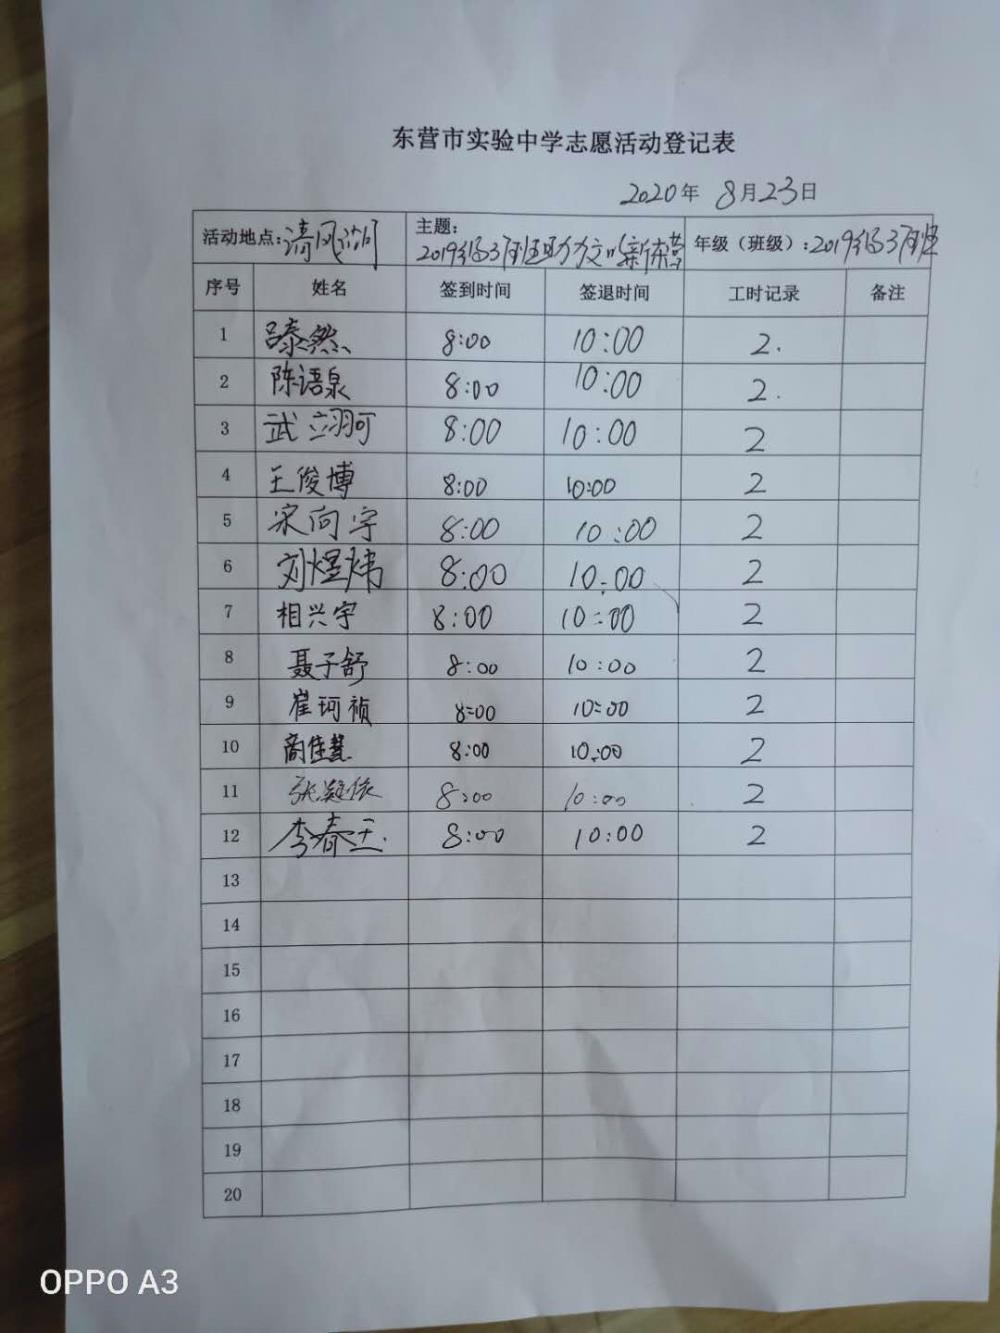 东营市实验中学志愿活动登记表
2020年 8月23日
活动地点:清风湖 主题:2019级3班助力文明新东营 年级(班级):2019级3班
序号 姓名 签到时间 签退时间 工时记录 备注
1 吕泰然 8:00 10:00 2.
2 陈语泉 8:00 10:00 2.
3 武翊珂 8:00 10:00 2
4 王俊博 8:00 10:00 2
5 宋向宇 8:00 10:00 2
6 刘煜炜 8:00 10:00 2
7 相兴宇 8:00 10:00 2
8 聂子舒 8:00 10:00 2
9 崔珂祯 8:00 10:00 2
10 商佳慧 8:00 10:00 2
11 张凝依 8:00 10:00 2
12 李春玉 8:00 10:00 2
13
14
15
16
17
18
19
20
OPPO A3